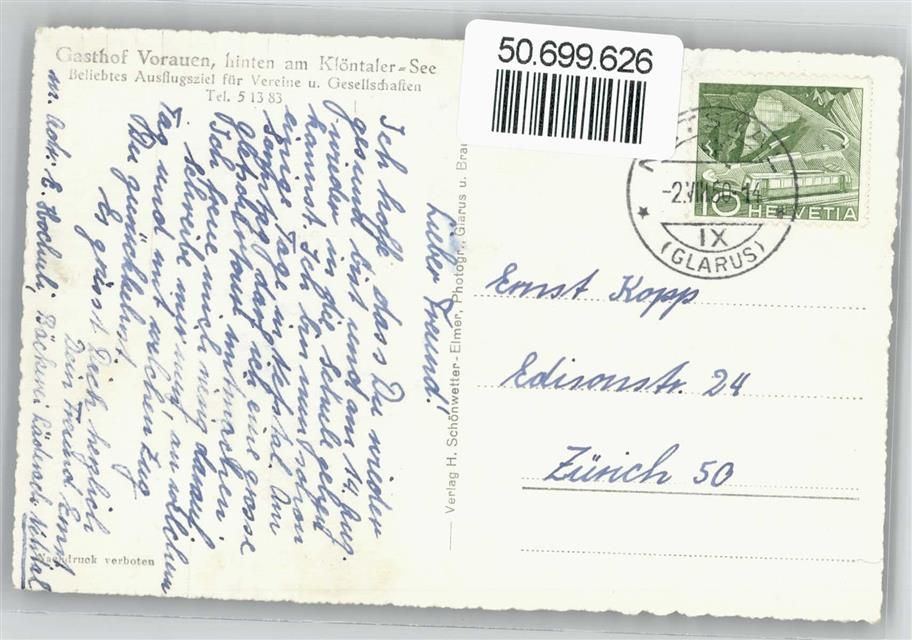 Gasthof Vorauen, hinten am Klöntaler-See
Beliebtes Ausflugsziel für Vereine u. Gesellschaften
Tel. 5 13 83
Lieber Freund!
Ich hoffe dass Du wieder
gesund bist und am 14. Aug.
wieder in die Schule gehen
kannst. Ich bin nun schon
einige Tage in
darf ich eine grosse
mitmachen.
Ich freue mich riesig darauf.
Schreibe mir nun, an welchem
Tag und mit welchem Zug
Du zurückkehrst.
Es grüsst Dich herzlich
Dein Freund Ernst
Bäckerei
Nachdruck verboten
Verlag H. Schönwetter-Elmer, Photogr., Glarus u.
50.699.626
-2.VIII.50-14
IX
(GLARUS)
10 HELVETIA
Ernst Kopp
Edisonstr. 24
Zürich 50